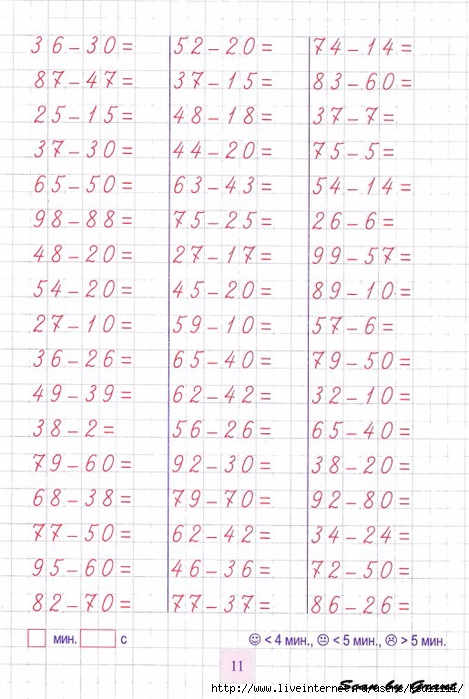 36-30= 52-20= 74-14=
87-47= 37-15= 83-60=
25-15= 48-18= 37-7=
37-30= 44-20= 75-5=
65-50= 63-43= 54-14=
98-88= 75-25= 26-6=
48-20= 27-17= 99-57=
54-20= 45-20= 89-10=
27-10= 59-10= 57-6=
36-26= 65-40= 79-50=
49-39= 62-42= 32-10=
38-2= 56-26= 65-40=
79-60= 92-30= 38-20=
68-38= 79-70= 92-80=
77-50= 62-42= 34-24=
95-60= 46-36= 72-50=
82-70= 77-37= 86-26=
мин. с ☺ < 4 мин., 😐 < 5 мин., ☹ > 5 мин.
11
Scan by